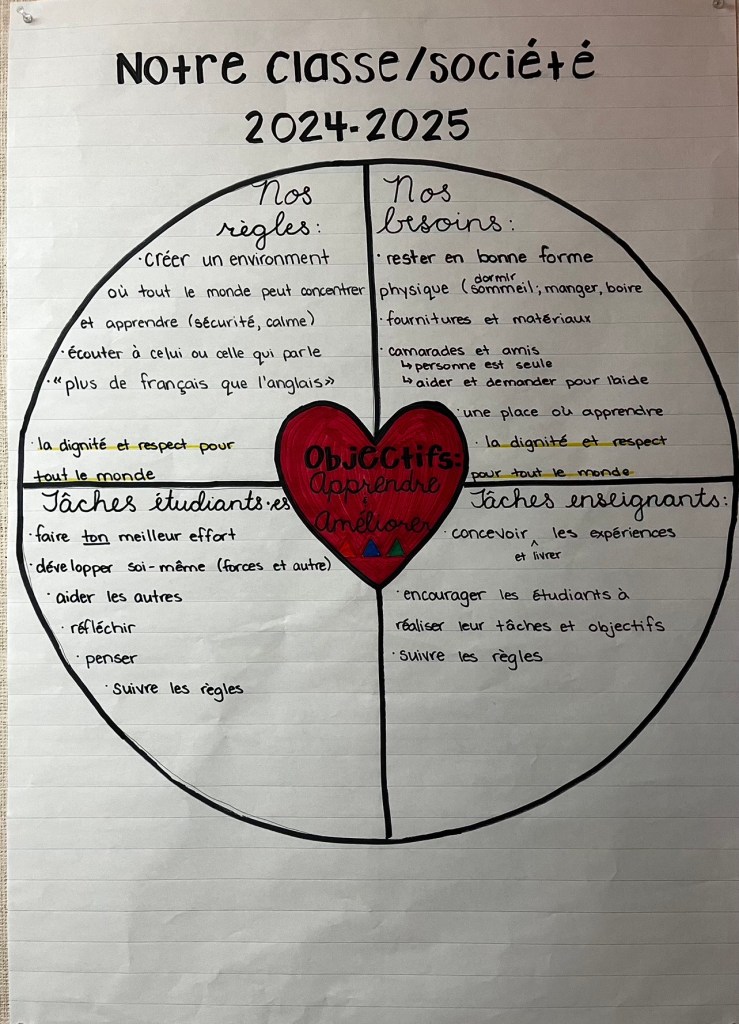 Notre classe/société
2024-2025
Nos
règles:
·créer un environment
où tout le monde peut concentrer
et apprendre (sécurité, calme)
·écouter à celui ou celle qui parle
·"plus de français que l'anglais»
·la dignité et respect pour
tout le monde
Nos
besoins:
·rester en bonne forme
dormir
physique (sommeil; manger, boire
·fournitures et matériaux
·camarades et amis
↳personne est seule
↳aider et demander pour l'aide
·une place où apprendre
·la dignité et respect
pour tout le monde
Objectifs:
Apprendre
Améliorer
Tâches étudiants·es
·faire ton meilleur effort
·développer soi-même (forces et autre)
·aider les autres
·réfléchir
·penser
·suivre les règles
Tâches enseignants:
·concevoir ^ les expériences
et livrer
·encourager les étudiants à
réaliser leur tâches et objectifs
·suivre les règles